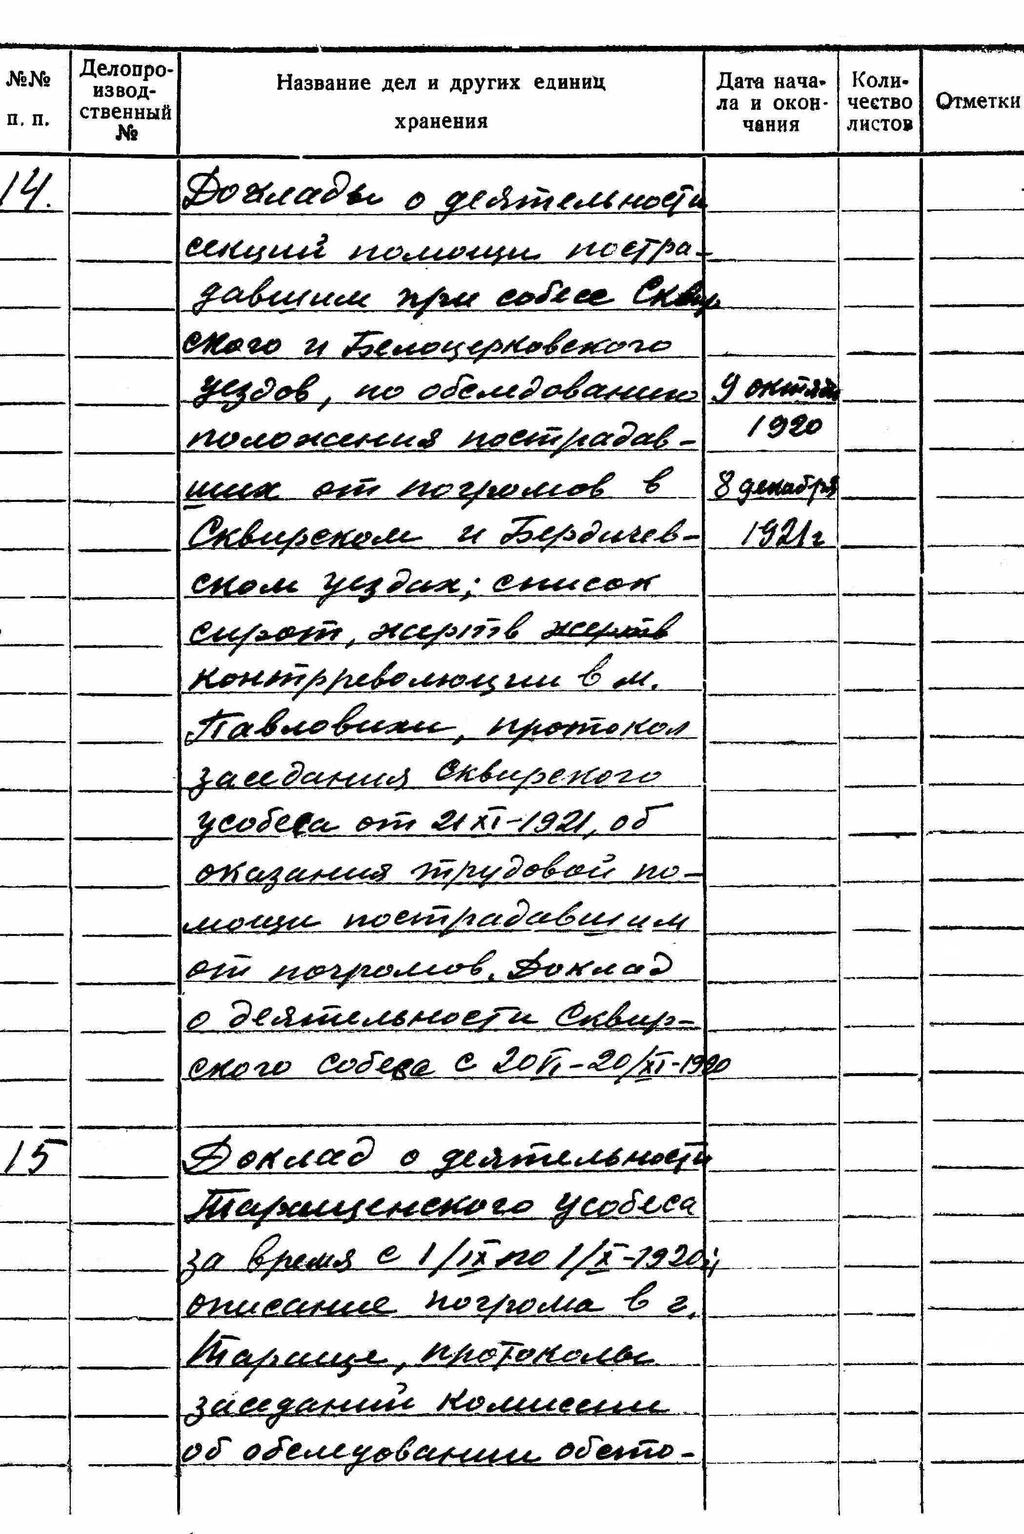 №№ п. п.
Делопроизводственный №
Название дел и других единиц хранения
Дата начала и окончания
Количество листов
Отметки
14.
Доклады о деятельности
секций помощи постра-
давшим при собесе Сквир
ского и Белоцерковского
уездов, по обследованию
положения пострадав-
ших от погромов в
Сквирском и Бердичев-
ском уездах; список
сирот, жертв жертв
контрреволюции в м.
Павловихи, протокол
заседания Сквирского
усобеса от 21 XI-1921, об
оказания трудовой по-
мощи пострадавшим
от погромов. Доклад
о деятельности Сквир-
ского собеса с 20 VI-20/XI-1920
9 октября
1920
8 декабря
1921 г
15
Доклад о деятельности
Таращенского усобеса
за время с 1/IX по 1/X-1920 г;
описание погрома в г.
Тараще, протоколы
заседаний комиссии
об обследовании обсто-